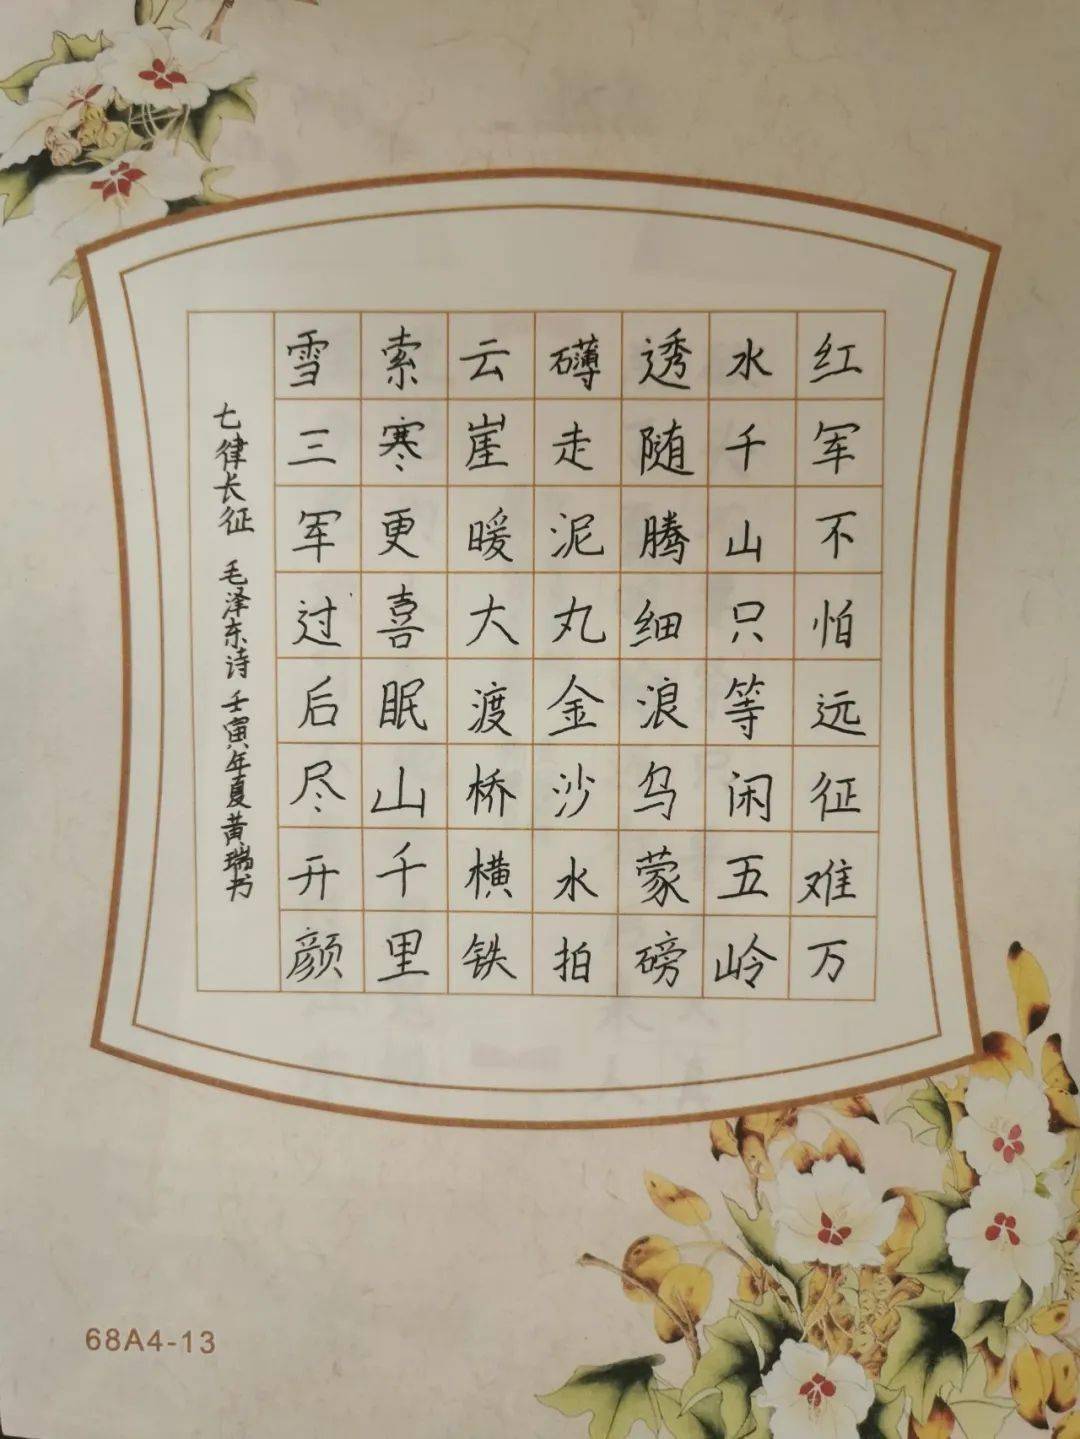 红军不怕远征难万
水千山只等闲五岭
透随腾细浪乌蒙磅
礴走泥丸金沙水拍
云崖暖大渡桥横铁
索寒更喜眠山千里
雪三军过后尽开颜
七律长征 毛泽东诗 壬寅年夏黄瑞书
68A4-13